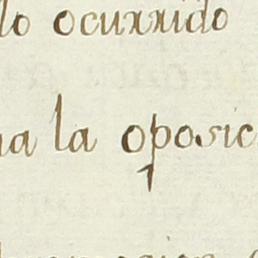 lo ocurrido
na la oposic